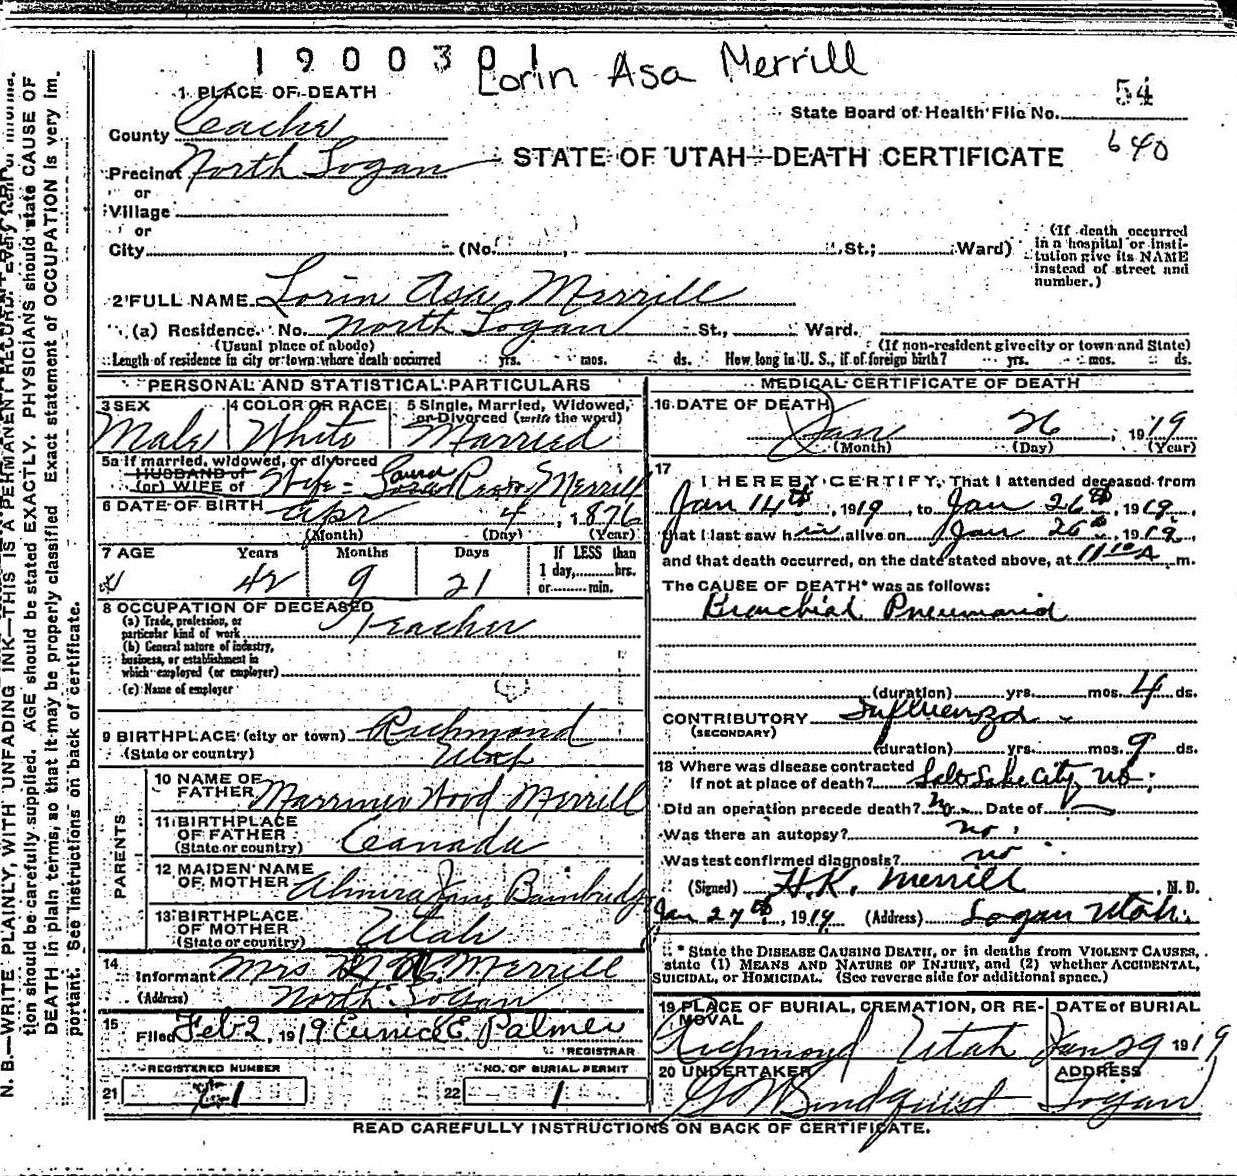 1 9 0 0 3 0 1
Lorin Asa Merrill
1 PLACE OF DEATH
54
State Board of Health File No.
County Ceache
640
STATE OF UTAH—DEATH CERTIFICATE
Precinct North Logan
or
Village
or
City (No. , St.; Ward)
(If death occurred in a hospital or institution give its NAME instead of street and number.)
2 FULL NAME Lorin Asa Merrill
(a) Residence. No. North Logan St., Ward.
(Usual place of abode) (If non-resident give city or town and State)
Length of residence in city or town where death occurred yrs. mos. ds. How long in U. S., if of foreign birth? yrs. mos. ds.
PERSONAL AND STATISTICAL PARTICULARS
3 SEX 4 COLOR OR RACE 5 Single, Married, Widowed, or Divorced (write the word)
Male White Married
5a If married, widowed, or divorced
HUSBAND of
(or) WIFE of Wife - Merrill
6 DATE OF BIRTH Apr 4, 1876
(Month) (Day) (Year)
7 AGE Years Months Days If LESS than
1 day, hrs.
42 9 21 or min.
8 OCCUPATION OF DECEASED
(a) Trade, profession, or
particular kind of work Teacher
(b) General nature of industry,
business, or establishment in
which employed (or employer)
(c) Name of employer
9 BIRTHPLACE (city or town) Richmond
(State or country) Utah
PARENTS
10 NAME OF FATHER Marriner Wood Merrill
11 BIRTHPLACE OF FATHER
(State or country) Canada
12 MAIDEN NAME OF MOTHER Almira Jane Bainbridge
13 BIRTHPLACE OF MOTHER
(State or country) Utah
14 Informant Mrs Merrill
(Address) North Logan
15 Filed Feb 2, 1919 Eunice E. Palmer
REGISTRAR
REGISTERED NUMBER NO. OF BURIAL PERMIT
21 1 22 1
MEDICAL CERTIFICATE OF DEATH
16 DATE OF DEATH
Jan 26, 1919
(Month) (Day) (Year)
17 I HEREBY CERTIFY, That I attended deceased from
Jan 14th, 1919, to Jan 26th, 1919,
that I last saw him alive on Jan 26th, 1919,
and that death occurred, on the date stated above, at 11 10 A m.
The CAUSE OF DEATH* was as follows:
Bronchial Pneumonia
(duration) yrs. mos. 4 ds.
CONTRIBUTORY Influenza
(SECONDARY)
(duration) yrs. mos. 9 ds.
18 Where was disease contracted
If not at place of death? Salt Lake City, Ut.
Did an operation precede death? no Date of
Was there an autopsy? no.
Was test confirmed diagnosis? no
(Signed) H.K. Merrill, M. D.
Jan 27th, 1919 (Address) Logan Utah.
* State the DISEASE CAUSING DEATH, or in deaths from VIOLENT CAUSES,
state (1) MEANS AND NATURE OF INJURY, and (2) whether ACCIDENTAL,
SUICIDAL, or HOMICIDAL. (See reverse side for additional space.)
19 PLACE OF BURIAL, CREMATION, OR REMOVAL DATE of BURIAL
Richmond Utah Jan 29 1919
20 UNDERTAKER ADDRESS
Lindquist Logan
READ CAREFULLY INSTRUCTIONS ON BACK OF CERTIFICATE.
N. B.—WRITE PLAINLY, WITH UNFADING INK—THIS IS A PERMANENT RECORD. Every item of informa-
tion should be carefully supplied. AGE should be stated EXACTLY. PHYSICIANS should state CAUSE OF
DEATH in plain terms, so that it may be properly classified. Exact statement of OCCUPATION is very im-
portant. See instructions on back of certificate.